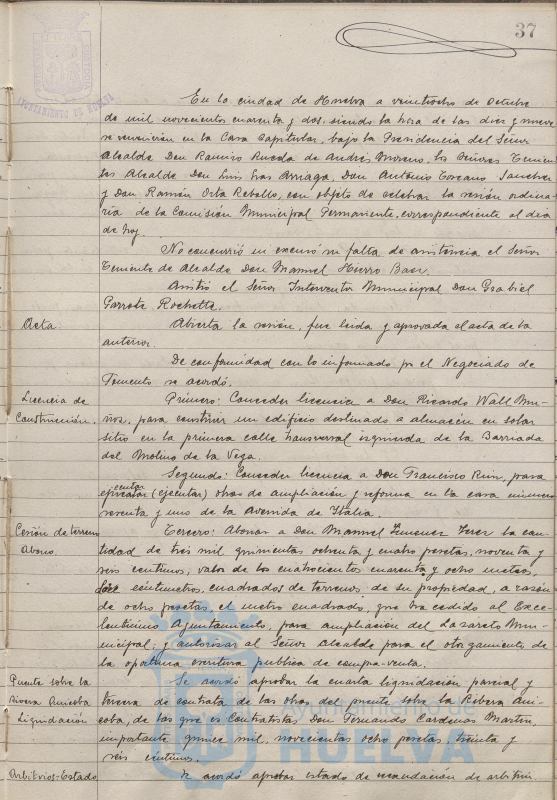 37
AYUNTAMIENTO DE HUELVA
En la ciudad de Huelva a veintiocho de Octubre
de mil novecientos cuarenta y dos, siendo la hora de las diez y nueve
se reunieron en la Casa Capitular, bajo la Presidencia del Señor
Alcalde Don Ramiro Rueda de Andrés Moreno, los Señores Tenien-
tes Alcalde Don Luis Gras Arriaga, Don Antonio Toscano Sanchez
y Don Ramón Orta Rebollo, con objeto de celebrar la sesión ordina-
ria de la Comisión Municipal Permanente, correspondiente al dia
de hoy.
No concurrió ni excusó su falta de asistencia el Señor
Teniente de Alcalde Don Manuel Hierro Baez.
Asistió el Señor Interventor Municipal Don Grabiel
Parrote Rochette.
Acta. Abierta la sesión, fue leida y aprobada el acta de la
anterior.
De conformidad con lo informado por el Negociado de
Fomento se acordó.
Licencia de Primero: Conceder licencia a Don Ricardo Wall Mu-
Construcción. ñoz, para construir un edificio destinado a almacén en solar
sito en la primera calle transversal izquierda de la Barriada
del Molino de la Vega.
Segundo: Conceder licencia a Don Francisco Ruiz, para
(ejecutar) obras de ampliación y reforma en la casa número
sesenta y uno de la Avenida de Italia.
Cesión de terreno Tercero: Abonar a Don Manuel Jimenez Jerez la can-
Abono. tidad de tres mil quinientas ochenta y cuatro pesetas, noventa y
seis centimos, valor de los cuatrocientos cuarenta y ocho metros,
doce centimetros, cuadrados de terrenos, de su propiedad, a razón
de ocho pesetas, el metro cuadrado, que ha cedido al Exce-
lentisimo Ayuntamiento, para ampliación del Lazareto Mu-
nicipal; y autorizar al Señor Alcalde para el otorgamiento de
la oportuna escritura publica de compra-venta.
Puente sobre la Se acordó aprobar la cuarta liquidación parcial y
rivera Anicoba tercera de contrata de las obras del puente sobre la Ribera Ani-
Liquidación coba, de las que es Contratista Don Fernando Cardenas Martin,
importante quince mil, novecientas ocho pesetas, treinta y
seis céntimos.
Arbitrios: Estado Se acordó aprobar estado de recaudación de arbitrios
HUELVA